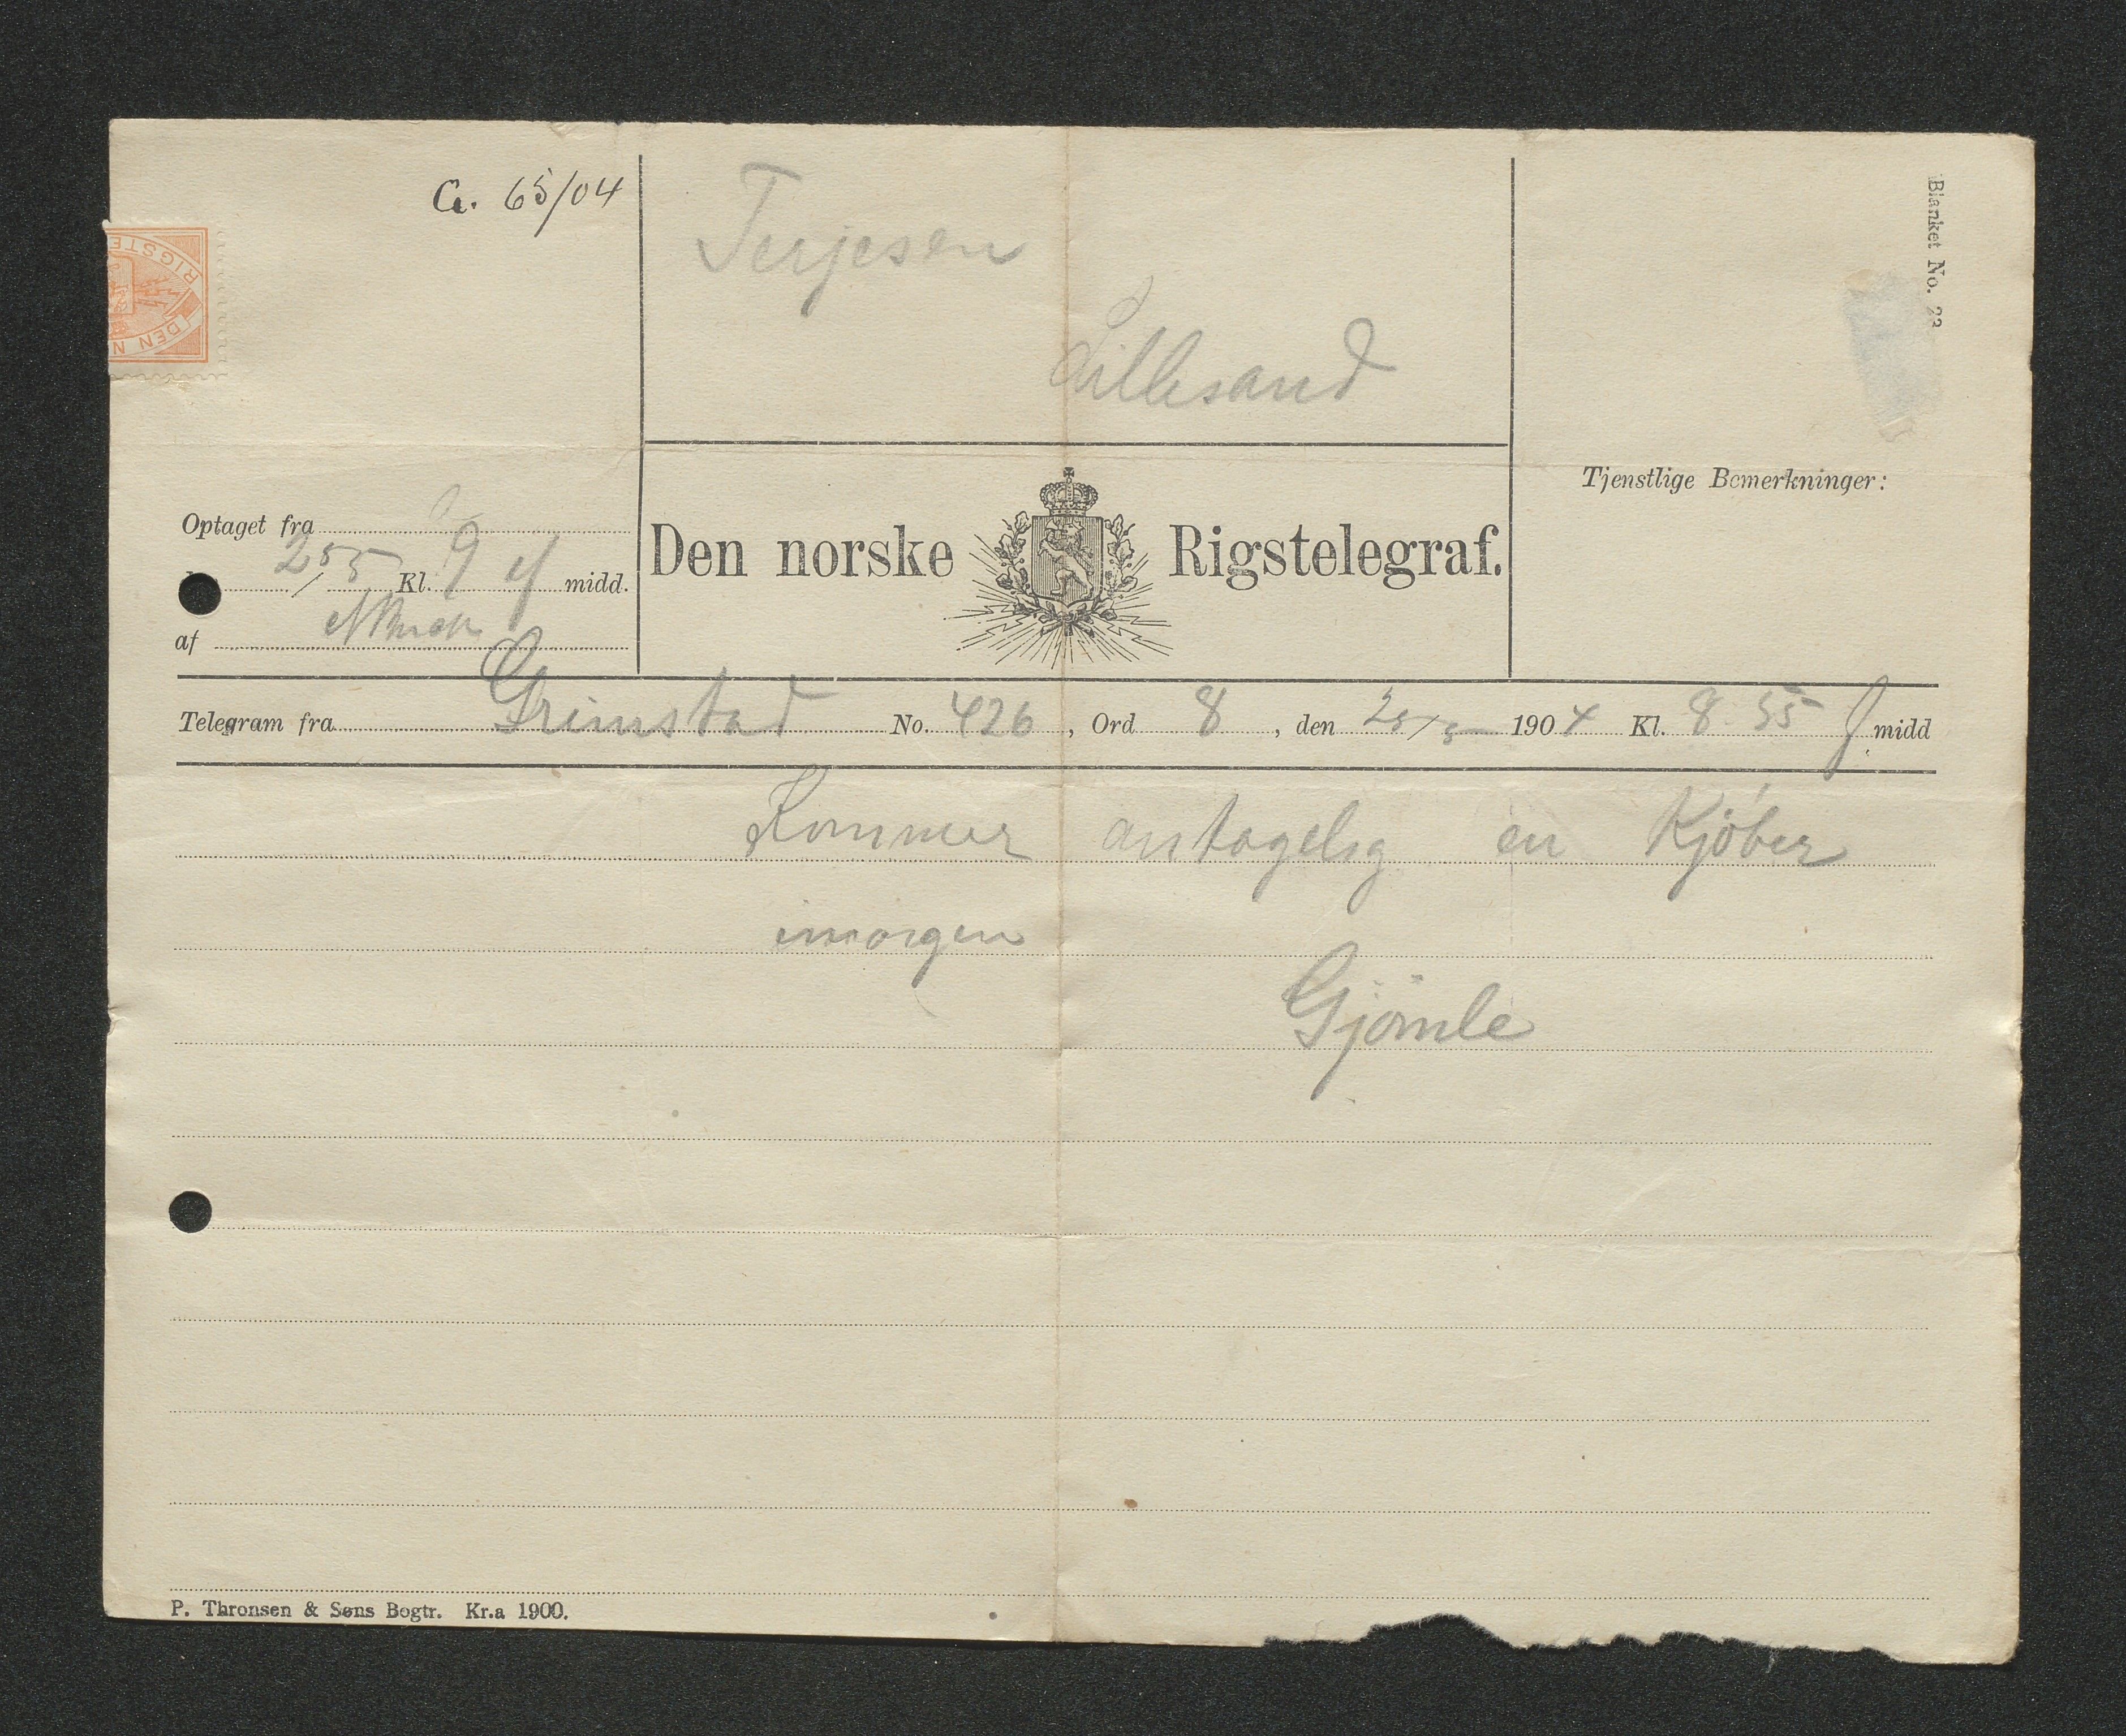 Ca. 65/04
Terjesen
Lillesand
Blanket No. 23
RIGSTE
DEN N
Tjenstlige Bemerkninger:
Optaget fra
25/5 Kl. 9 ef midd.
af
Den norske Rigstelegraf.
Telegram fra Grimstad No. 426, Ord 8, den 25/5 1904 Kl. 8 55 f midd
Kommer antagelig en Kjöber
imorgen
Gjömle
P. Thronsen & Søns Bogtr. Kr.a 1900.